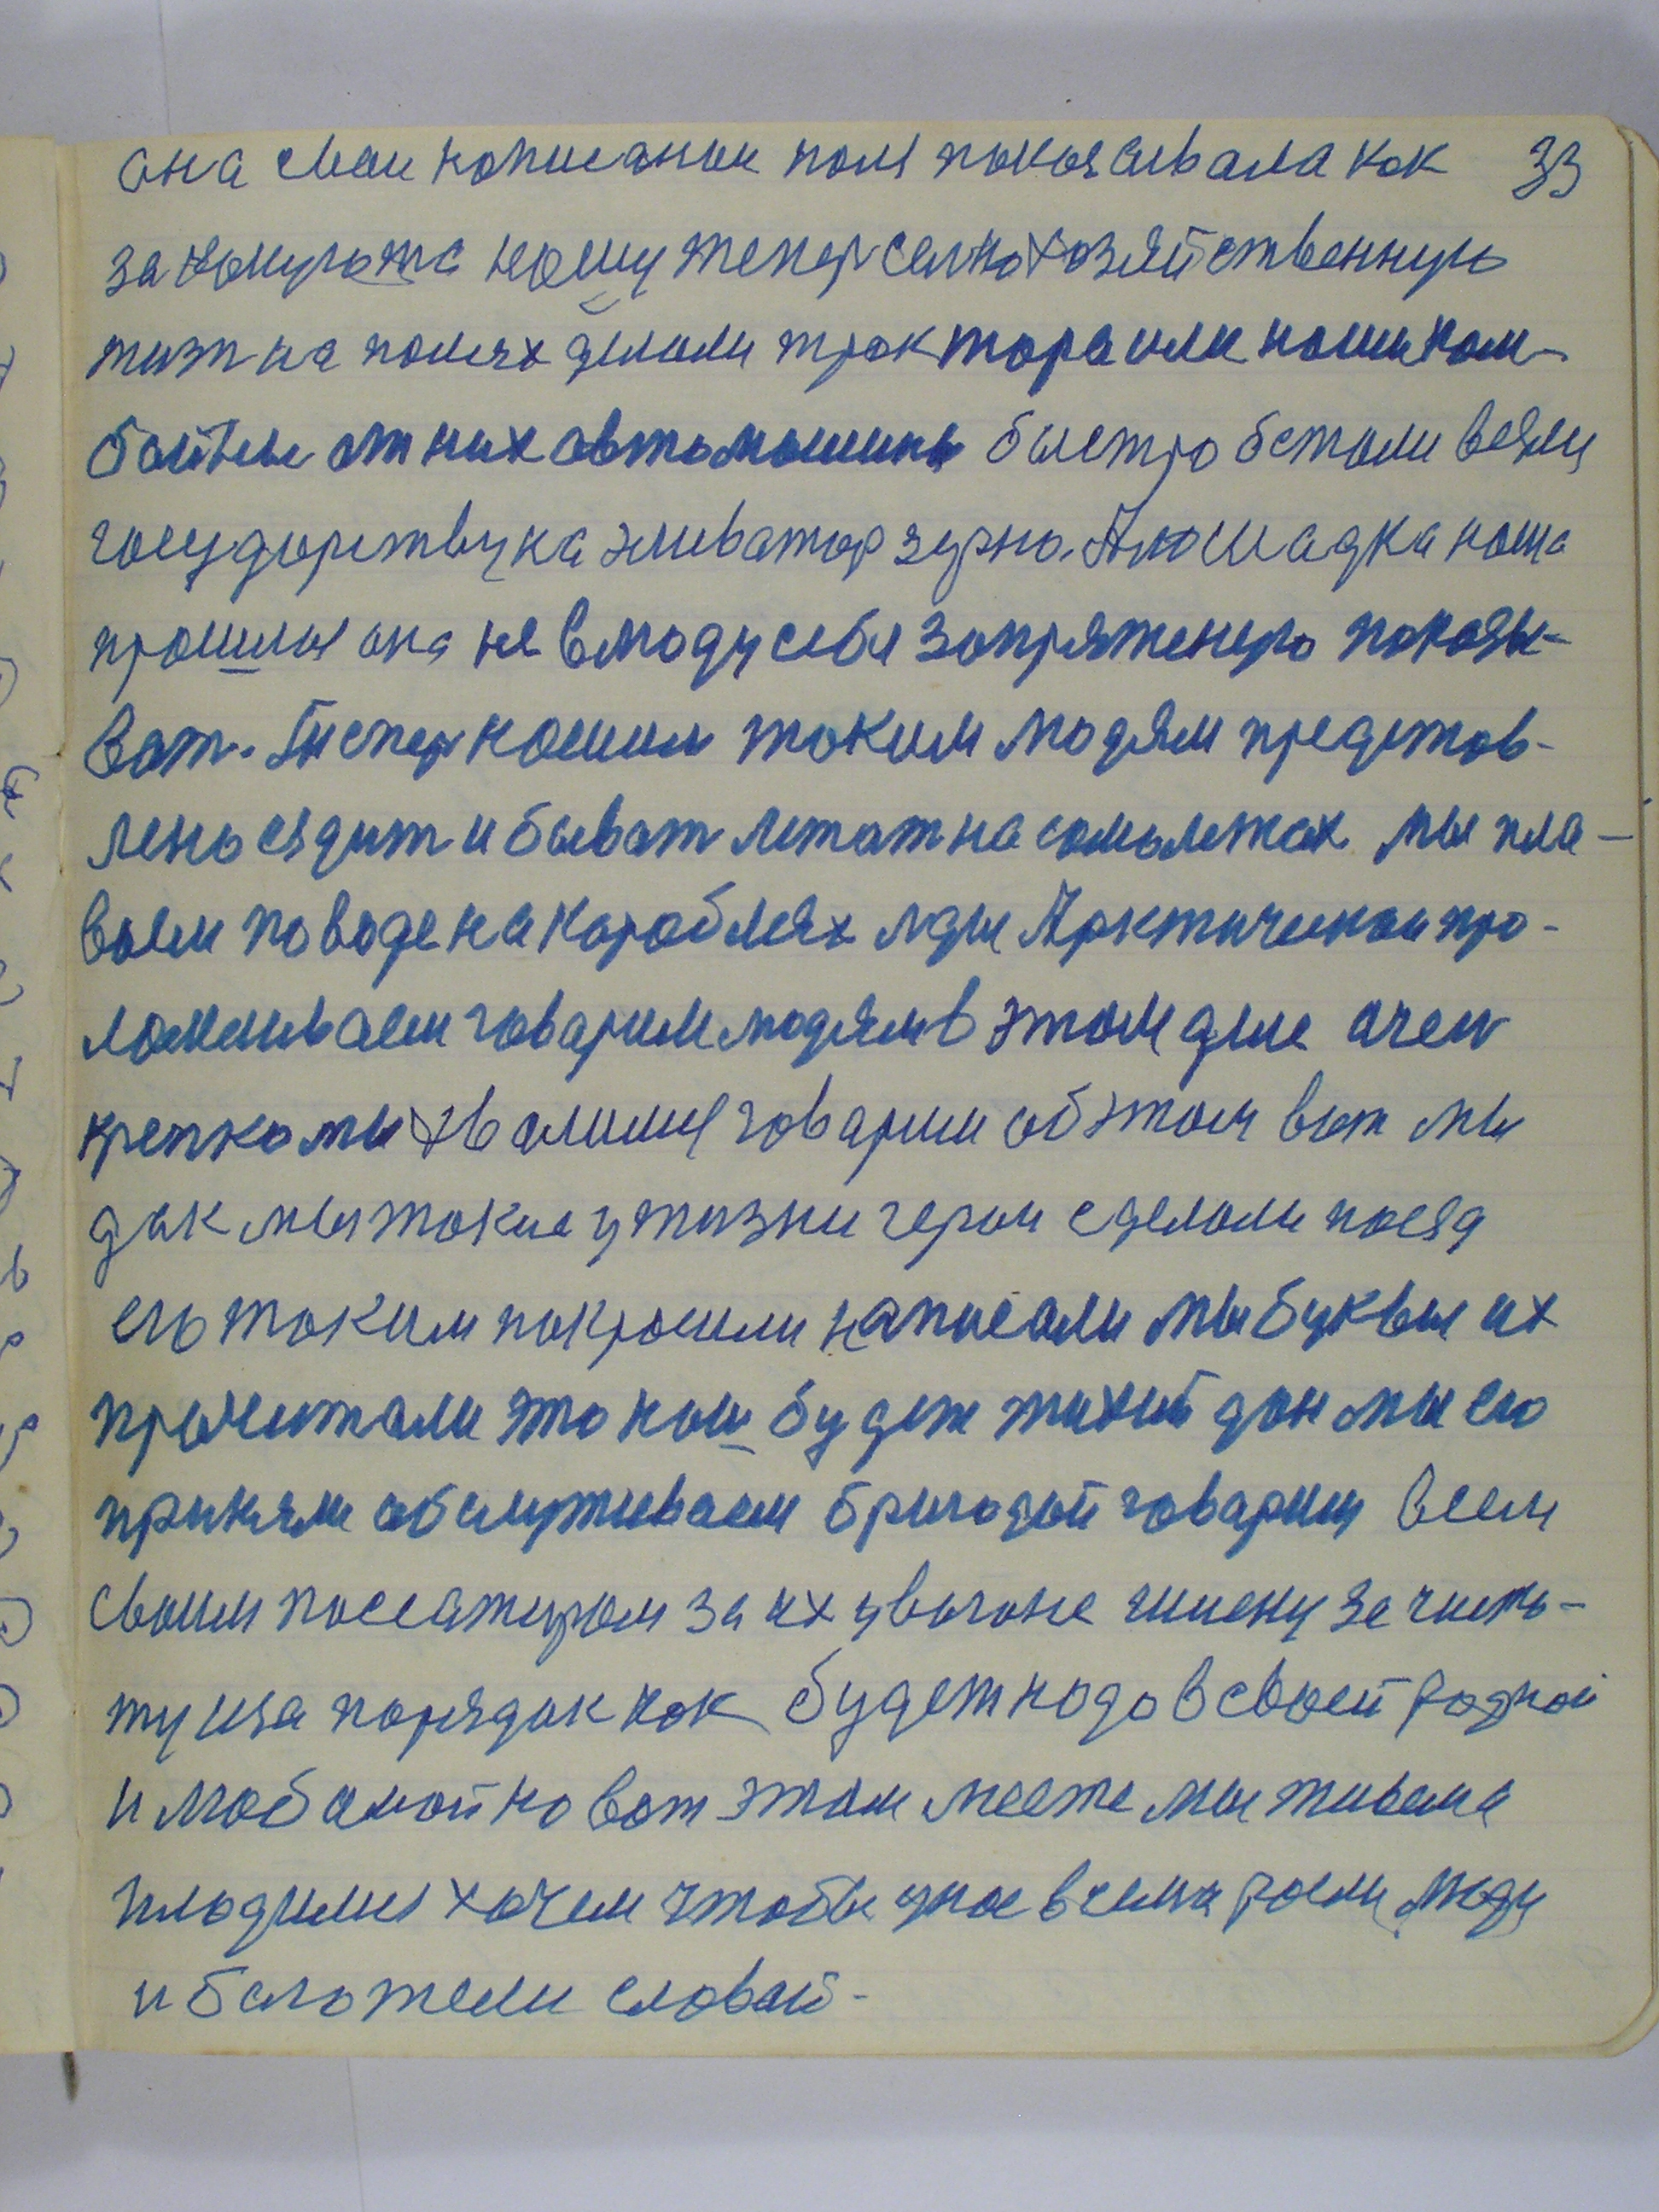 она свои написанои поля показивала как 33
за такую нашу тепер селнохозяйственную
жизн на полях делали трактора или наши ком-
байны от них автомашины быстро встали везли
государству на эливатор зурно. А лошадка наша
прошлая она не в моду себя запряженую показы-
ват. Тепер нашим таким людям представ-
лено ездит и быват летат на самолетах мы пла-
ваем по воде на караблях лды Арктическои про-
ламиваем говарим людям в этом деле очен
крепко мы хвалимся говарим об этом вот мы
дак мы такие у жизни герои сделали поезд
его таким покрасили написали мы буквы их
прочитали это наш будет тихий дон мы его
приняли обслуживаем бригадой говарим всем
своим пассажирам за их у вагоне гигиену за чисто-
ту и за порядак как будет надо в своей родной
и любимой но вот этом месте мы живем и
плодимся хочем чтобы у нас в семи росли люди
и богатели славай-